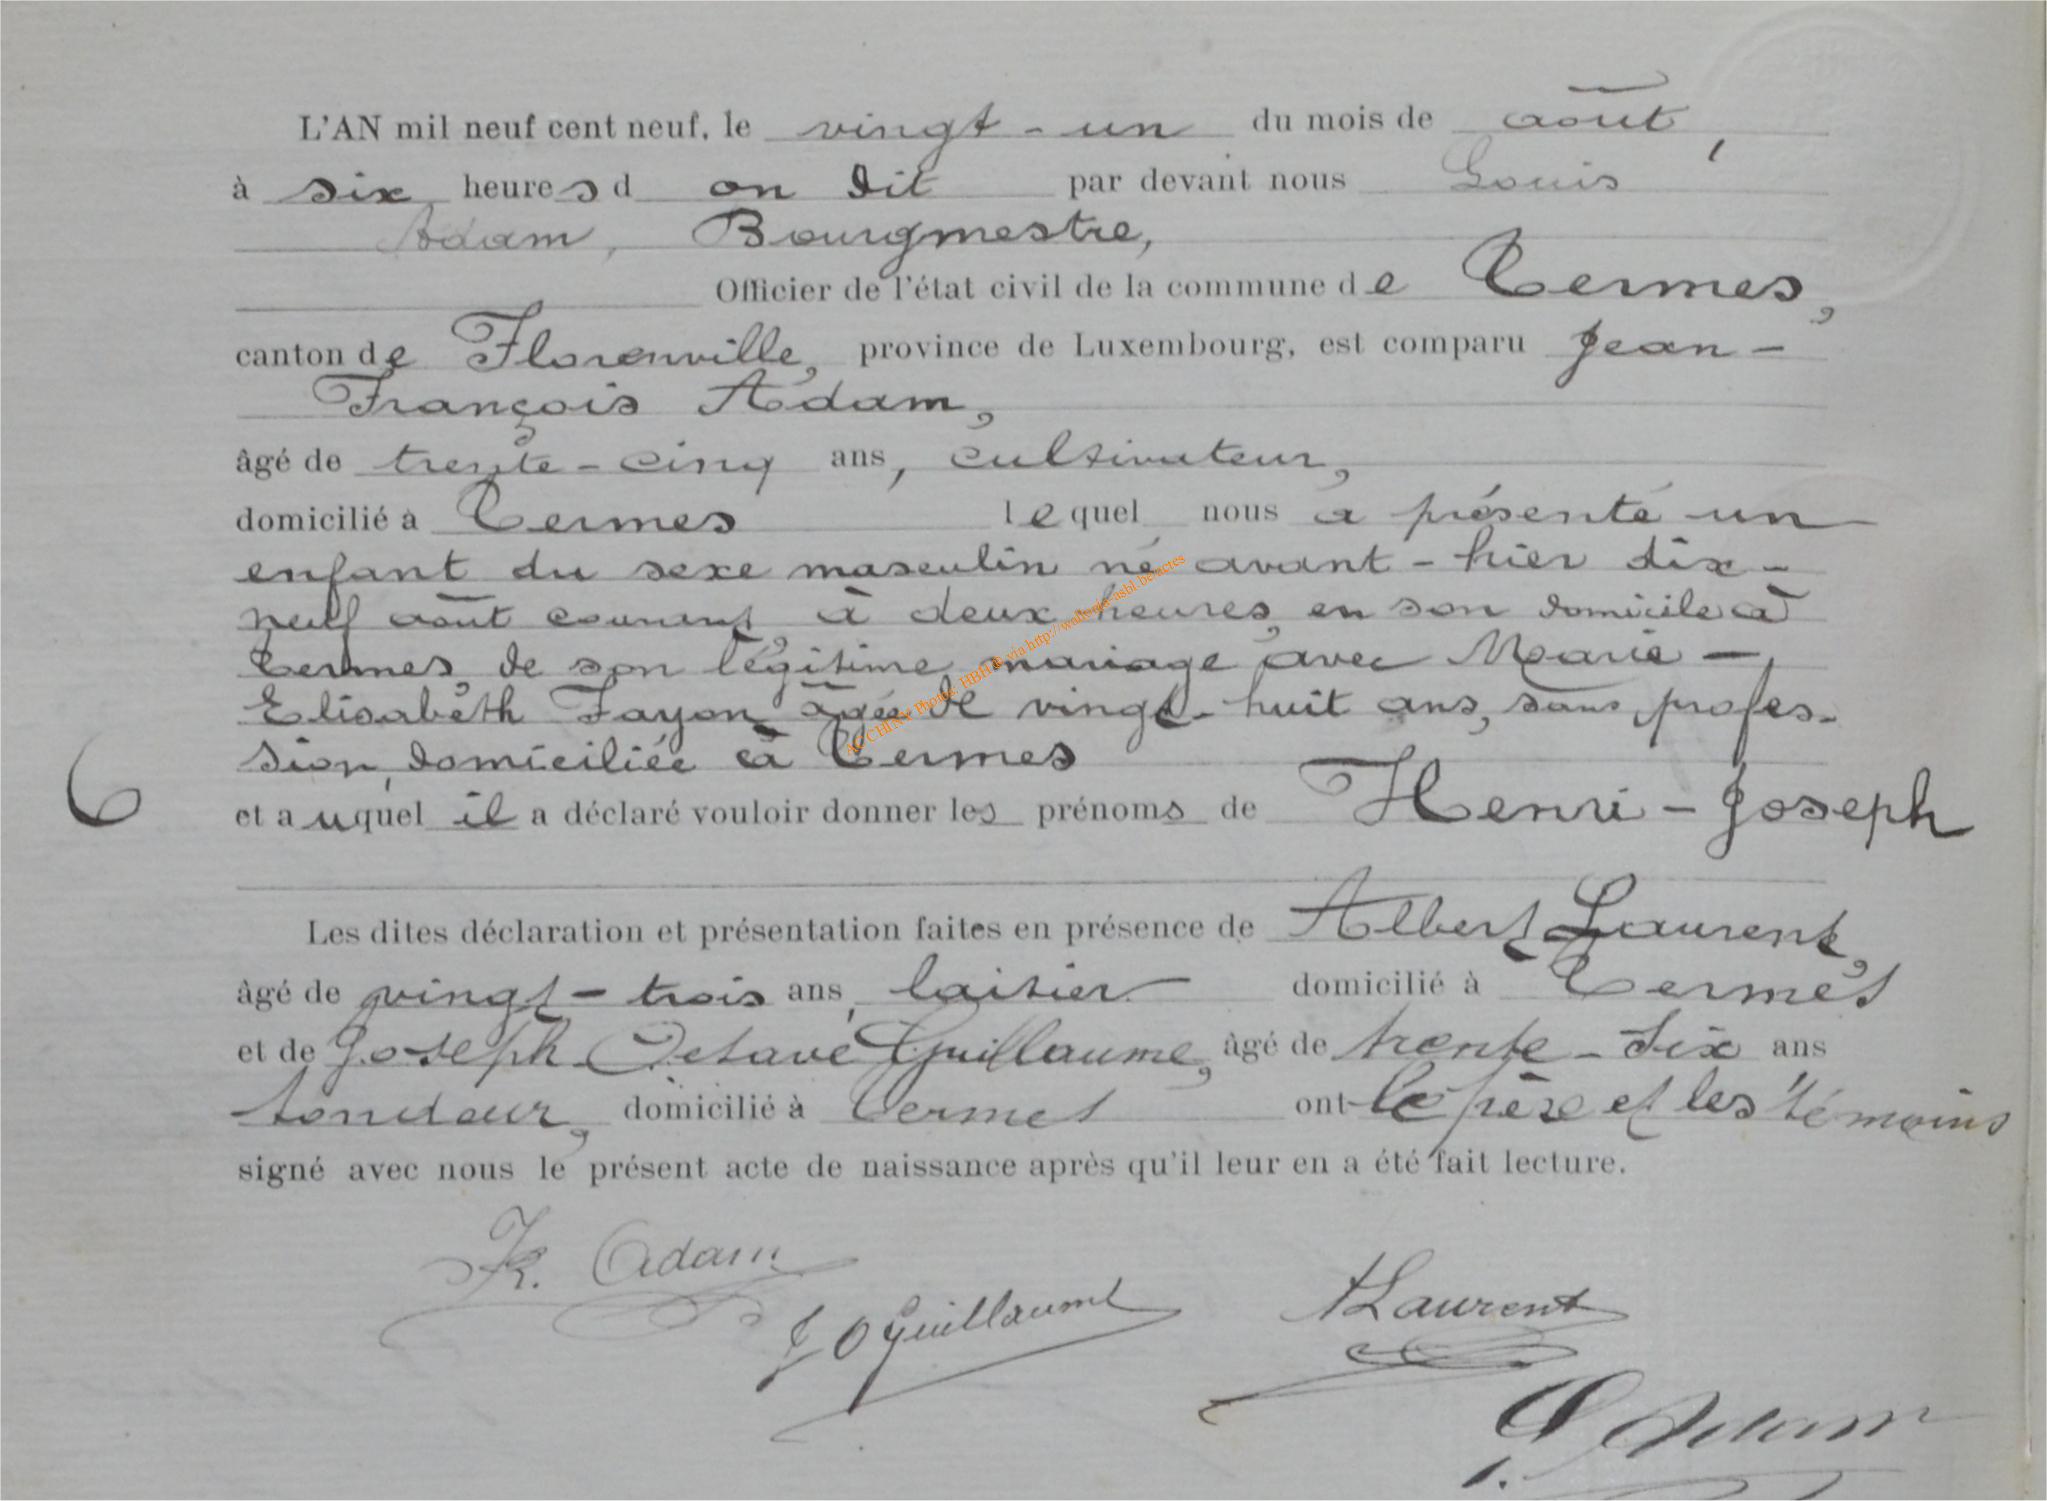 L'AN mil neuf cent neuf, le vingt-un du mois de août,
à six heures d on dit par devant nous Louis
Adam, Bourgmestre,
Officier de l'état civil de la commune de Termes,
canton de Florenville, province de Luxembourg, est comparu Jean-
François Adam,
âgé de trente-cinq ans, cultivateur,
domicilié à Termes lequel nous a présenté un
enfant du sexe masculin né avant-hier dix-
neuf août courant, à deux heures, en son domicile à
Termes, de son légitime mariage avec Marie-
Elisabeth Fayon âgée de vingt-huit ans, sans profes-
sion, domiciliée à Termes
6
et auquel il a déclaré vouloir donner les prénoms de Henri-Joseph
Les dites déclaration et présentation faites en présence de Albert Laurent,
âgé de vingt-trois ans, laitier domicilié à Termes
et de Joseph Octave Guillaume, âgé de trente-six ans
tondeur, domicilié à Termes ont le père et les témoins
signé avec nous le présent acte de naissance après qu'il leur en a été fait lecture.
Adam
J O Guillaume
A Laurent
L Adam
ACCHINY Photos: HBH © via http://wallonia-asbl.be/actes